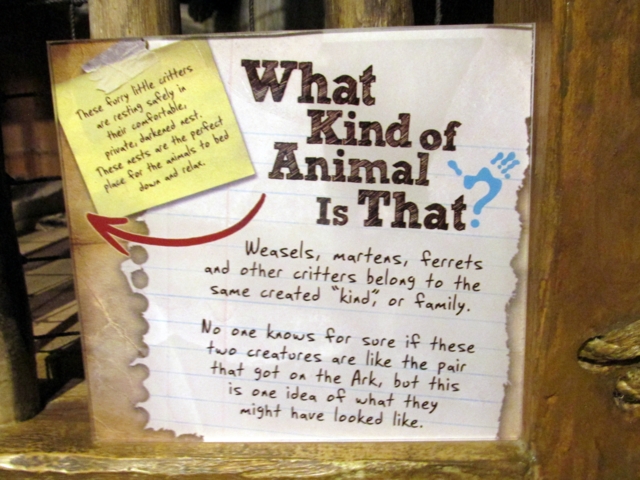 These furry little critters
are resting safely in
their comfortable,
private, darkened nest.
These nests are the perfect
place for the animals to bed
down and relax.
What
Kind of
Animal
Is That?
Weasels, martens, ferrets
and other critters belong to the
same created "kind", or family.
No one knows for sure if these
two creatures are like the pair
that got on the Ark, but this
is one idea of what they
might have looked like.